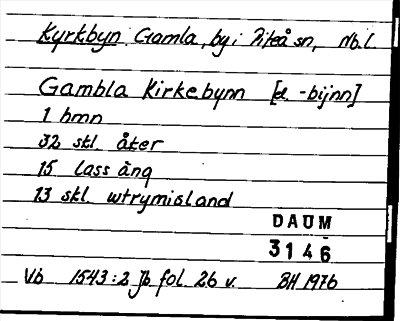 Kyrkbyn Gamla, by i Piteå sn, Nb.l.
Gambla Kirkebynn [el. -bijnn]
1 hmn
32 skl. åker
15 lass äng
13 skl. wtrymisland
DAUM
3146
Vb 1543:2 Jb fol. 26 v. BH 1976